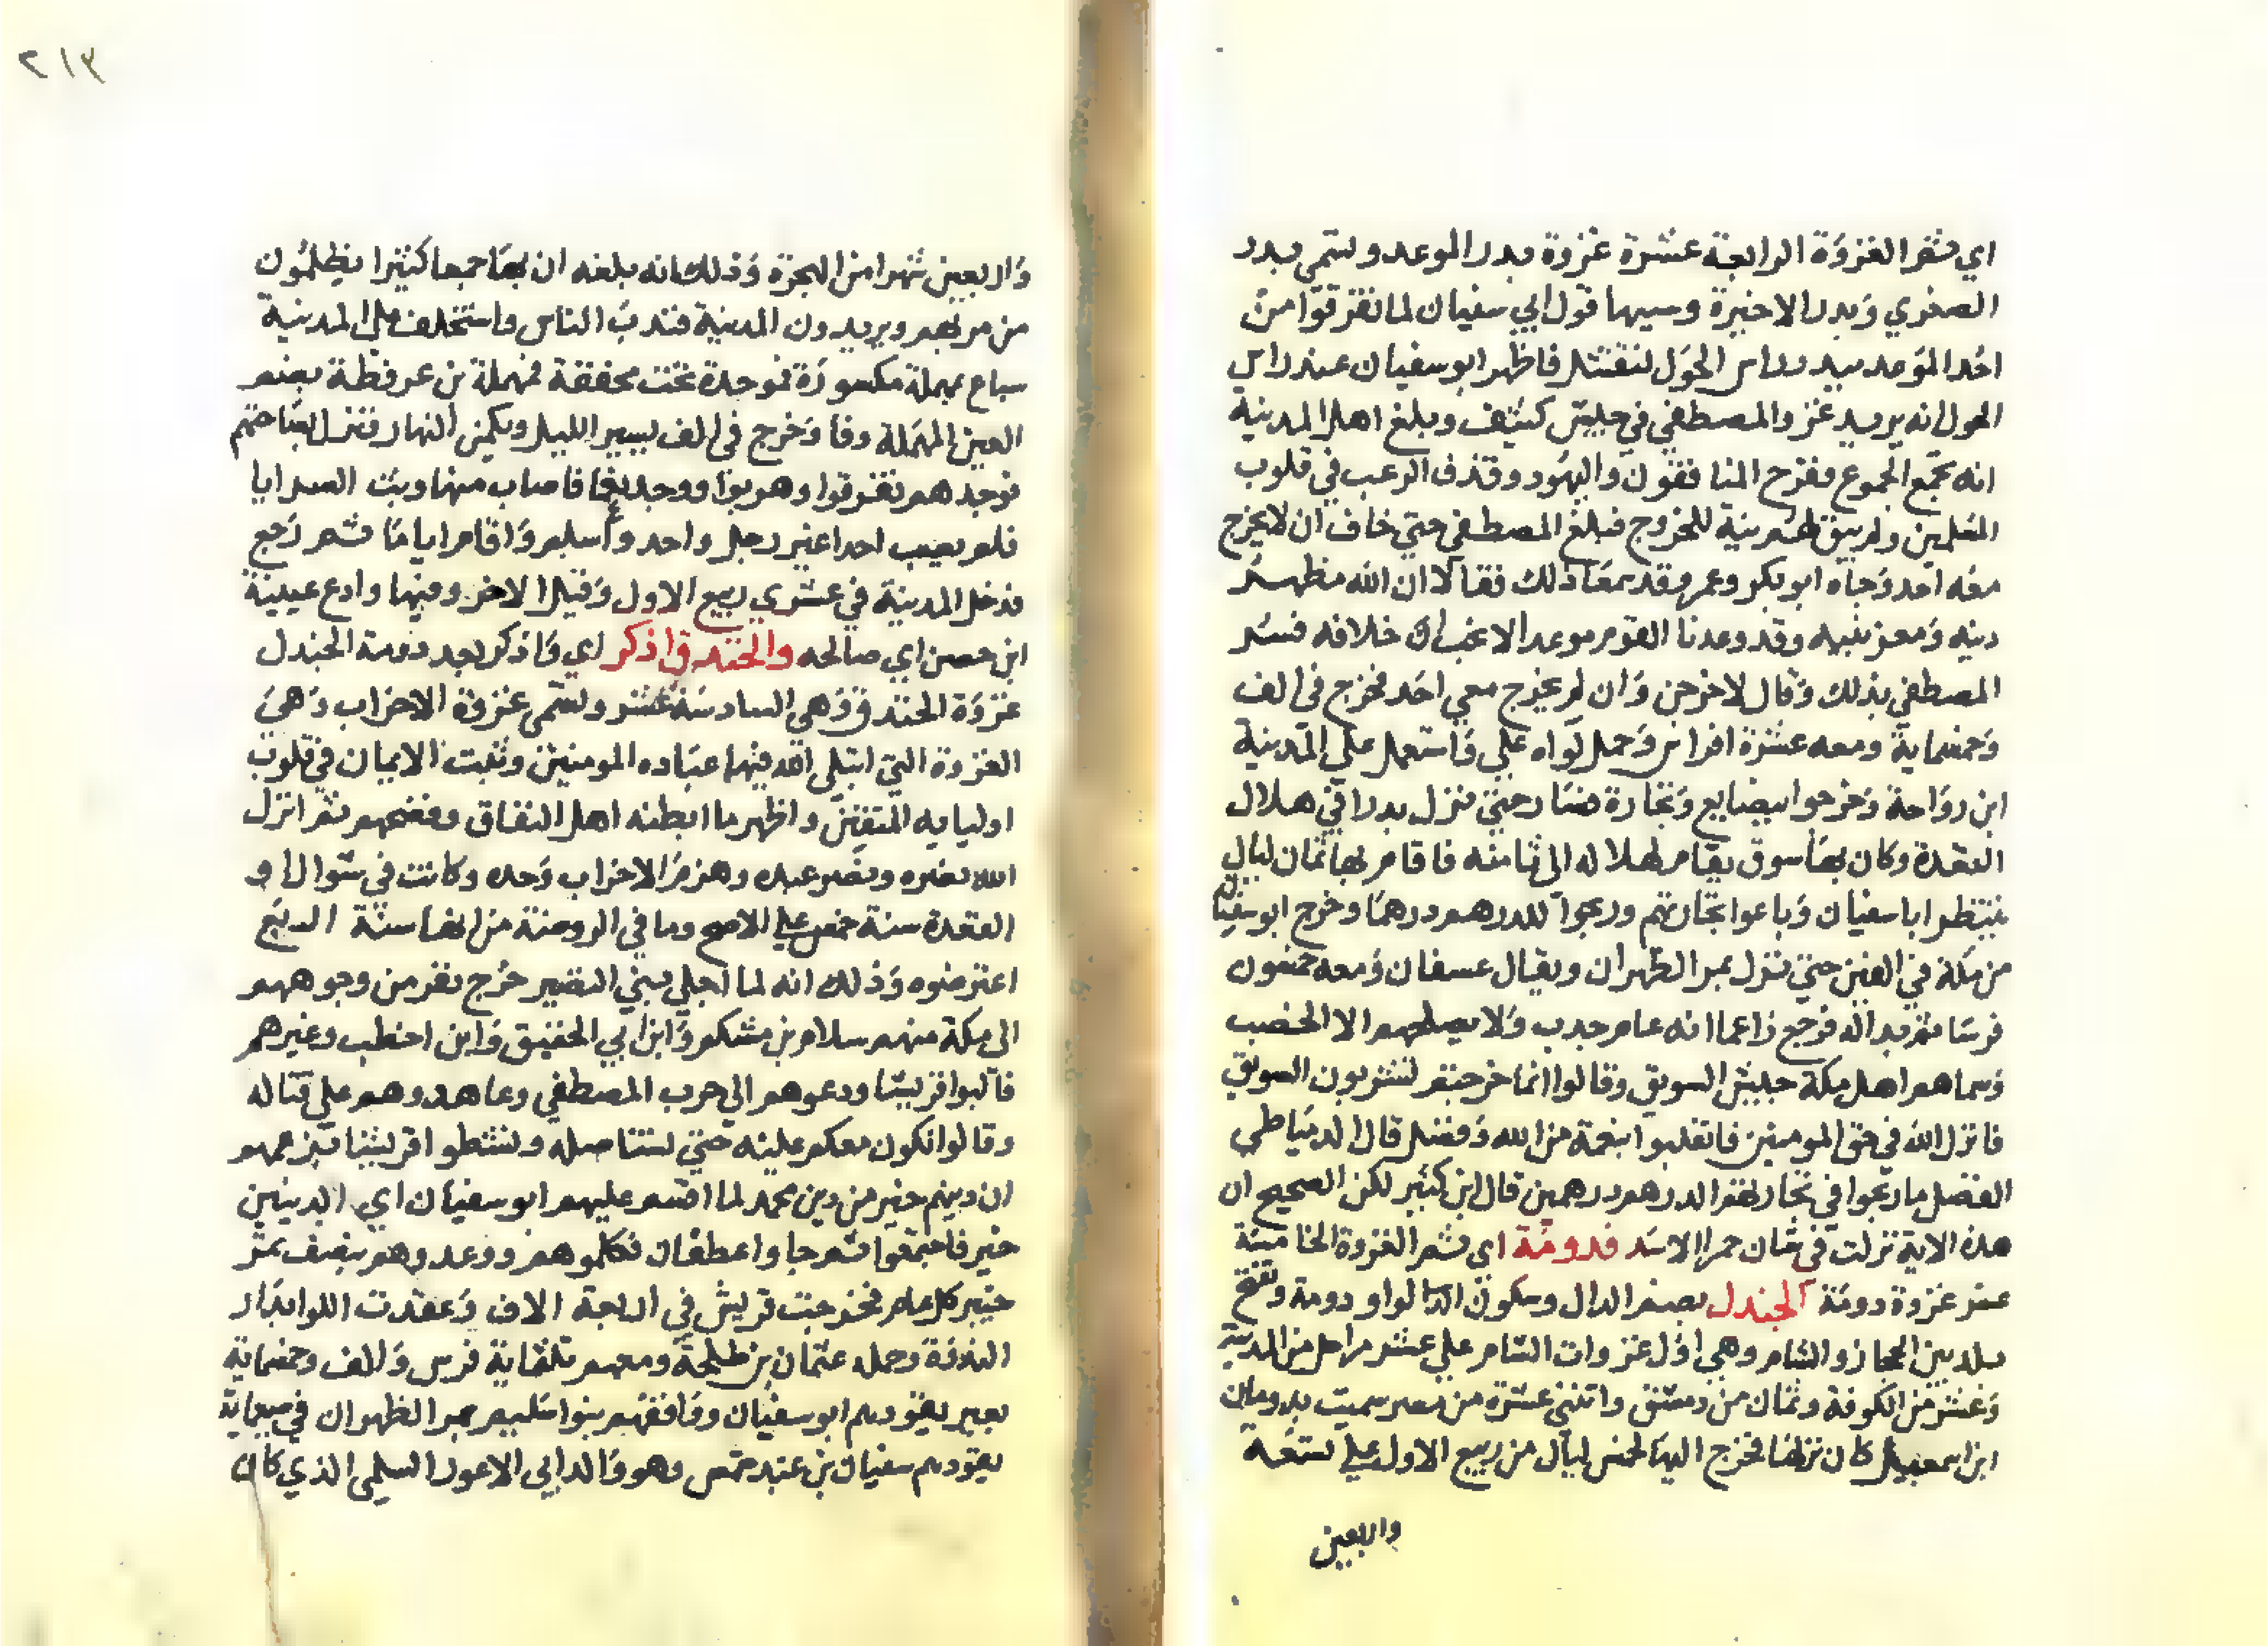 اي ثم الغزوة الرابعة عشرة غزوة بدر الموعد وتسمي بدر
الصغري وبدر الاخيرة وسببها قول ابي سفيان لما تفرقوا من
احد الموعد ببدر راس الحول لنقتتل فاظهر ابو سفيان عند راس
الحول انه يريد غزو المصطفي في جيش كثيف وبلغ اهل المدينة
انه يجمع الجموع ففرح المنافقون واليهود وقذف الرعب في قلوب
المسلمين ولم يبق لهم نية للخروج فبلغ المصطفي حتي خاف ان لا يخرج
معه احد وجاه ابو بكر وعمر وقد سمعا ذلك فقالا ان الله مظهر
دينه ومعز نبيه وقد وعدنا القوم موعدا لا نحب خلافه فسر
المصطفي بذلك وقال لاخرجن وان لم يخرج معي احد فخرج في الف
وخمسماية ومعه عشرة افراس وحمل لواه علي واستعمل علي المدينة
ابن رواحة وخرجوا ببضايع وتجارة فسار حتي نزل بدرا في هلال
القعدة وكان بها سوق يقام لهلاله الي ثامنه فاقام بها ثمان ليال
ينتظر ابا سفيان وباعوا تجارتهم وربحوا للدرهم درهما وخرج ابو سفيان
من مكة في الفين حتي نزل بمر الظهران ويقال عسفان ومعه خمسون
فرسا ثم بدا له فرجع زاعما انه عام جدب ولا يصلحهم الا الخصب
وسماهم اهل مكة جيش السويق وقالوا انما خرجتم لتشربون السويق
فانزل الله في حق المومنين فانقلبوا بنعمة من الله وفضل قال الدمياطي
الفضل ما ربحوا في تجارتهم الدرهم درهمين قال ابن كثير لكن الصحيح ان
هذه الاية نزلت في شان حمرا الاسد فدومة اي ثم الغزوة الخامسة
عشر غزوة دومة الجندل بضم الدال وسكون الواو دومة وتفتح
بلد بين الحجاز والشام وهي اول غزوات الشام علي عشر مراحل من المدينة
وعشر من الكوفة وثمان من دمشق واثنتي عشرة من مصر سميت بدومان
ابن اسمعيل كان نزلها فخرج اليها لخمس ليال من ربيع الاول علي تسعة
واربعين
٢١٣
واربعين شهرا من الهجرة وذلك انه بلغه ان بها جمعا كثيرا يظلمون
من مر بهم ويريدون المدينة فندب الناس واستخلف علي المدينة
سباع بمهملة مكسورة فموحدة تحت مخففة فمهملة بن عرفطة بضم
العين المهملة وفا وخرج في الف يسير الليل ويكمن النهار فنزل بساحتهم
فوجدهم تفرقوا وهربوا ووجد نعما فاصاب منها وبث السرايا
فلم يصب احدا غير رجل واحد واسلم واقام اياما ثم رجع
فدخل المدينة في عشري ربيع الاول وقيل الاخر وفيها وادع عيينة
ابن حصن اي صالحه والخندق اذكر اي واذكر بعد دومة الجندل
غزوة الخندق وهي السادسة عشر وتسمي غزوة الاحزاب وهي
الغزوة التي ابتلي الله فيها عباده المومنين وثبت الايمان في قلوب
اوليايه المتقين واظهر ما ابطنه اهل النفاق وفضحهم ثم انزل
الله نصره ونصر عبده وهزم الاحزاب وحده وكانت في شوال او
القعدة سنة خمس علي الاصح وما في الروضة من انها سنة اربع
اعترضوه وذلك انه لما اجلي بني النضير خرج نفر من وجوههم
الي مكة منهم سلام بن مشكم وابن ابي الحقيق وابن اخطب وغيرهم
فالبوا قريشا ودعوهم الي حرب المصطفي وعاهدوهم علي قتاله
وقالوا نكون معكم عليه حتي نستاصله ونشطوا قريشا بزعمهم
ان دينهم خير من دين محمد لما اقسم عليهم ابو سفيان اي الدينين
خير فاجتمعوا ثم جاوا غطفان فكلموهم ووعدوهم بنصف تمر
خيبر كل عام فخرجت قريش في اربعة الاف وعقدت اللوا بدار
الندوة وحمله عثمان بن طلحة ومعهم ثلثماية فرس والف وخمسماية
بعير يقودهم ابو سفيان ووافقهم بنوا سليم بمر الظهران في سبعماية
يقودهم سفيان بن عبد شمس وهو والد ابي الاعور السلمي الذي كان